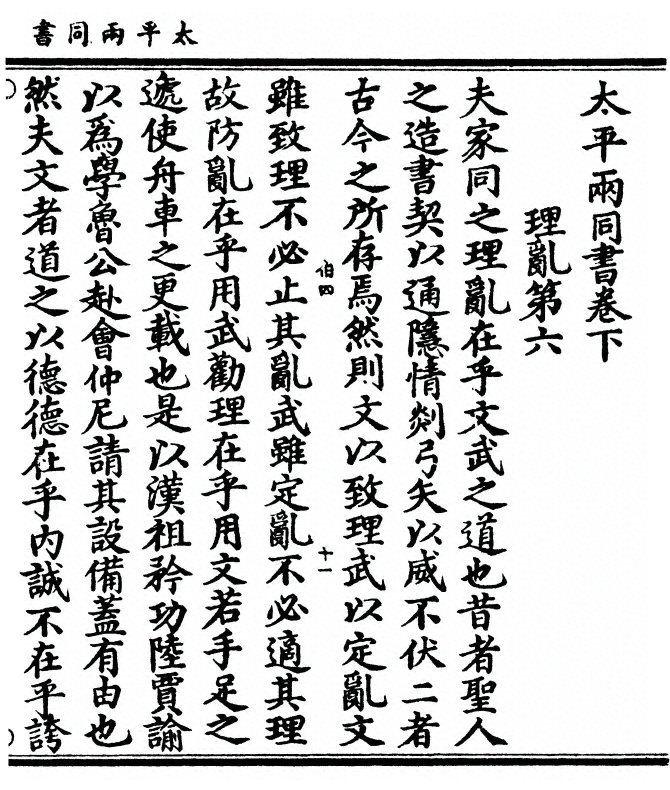 太平兩同書
太平兩同書卷下
理亂第六
夫家同之理亂在乎文武之道也昔者聖人
之造書契以通隱情剡弓矢以威不伏二者
古今之所存焉然則文以致理武以定亂文
伯四
十一
雖致理不必止其亂武雖定亂不必適其理
故防亂在乎用武勸理在乎用文若手足之
遞使舟車之更載也是以漢祖矜功陸賈諭
以爲學魯公赴會仲尼請其設備蓋有由也
然夫文者道之以德德在乎內誠不在乎誇